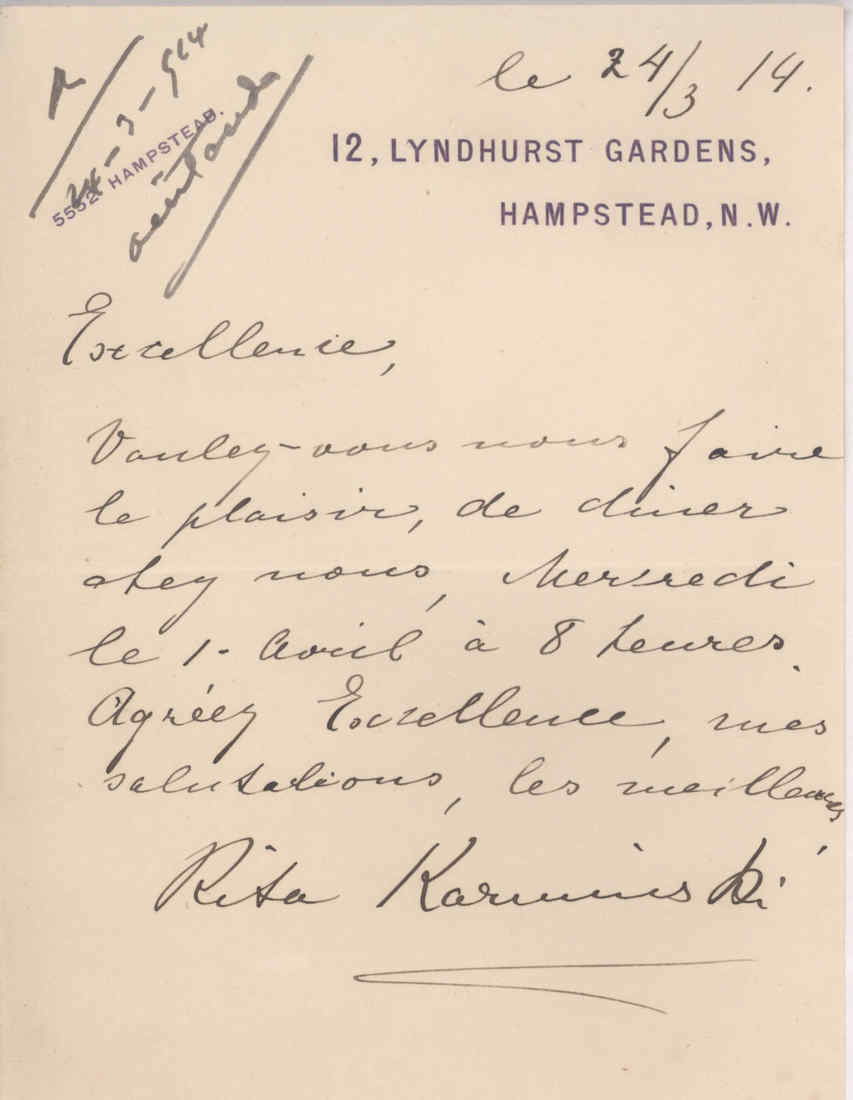 R
24-3-914
5532 HAMPSTEAD.
le 24/3 14.
12, LYNDHURST GARDENS,
HAMPSTEAD, N.W.
Excellence,
Voulez-vous nous faire
le plaisir, de diner
chez nous, Mercredi
le 1- Avril à 8 heures.
Agréez Excellence, mes
salutations, les meilleures
Rita Karminski